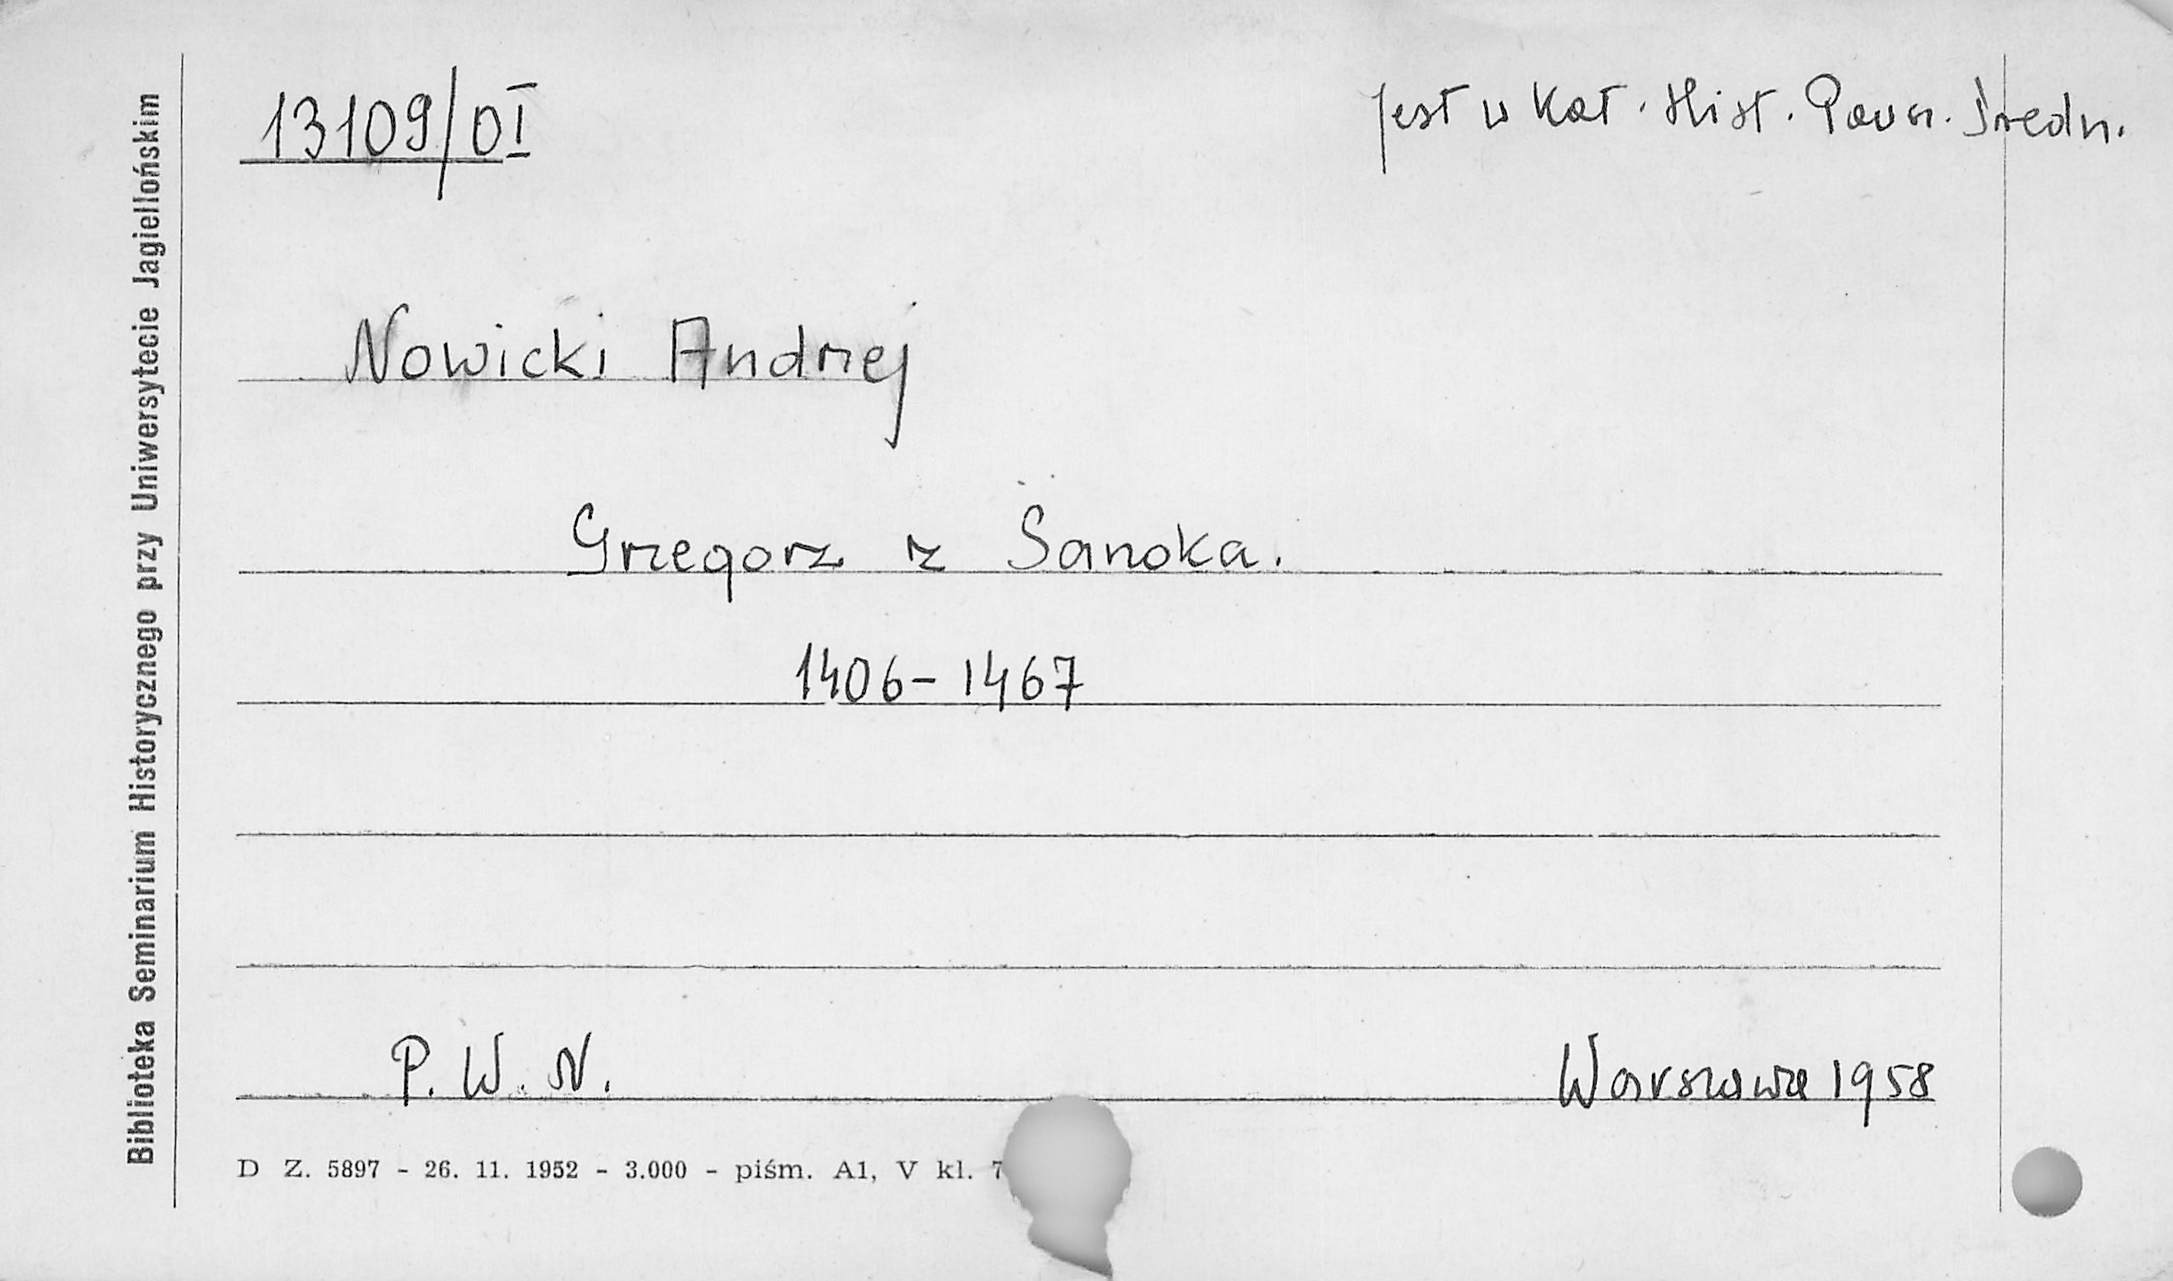 13109/0I
Jest w Kat. Hist. Pow. Średn.
Nowicki Andrzej
Grzegorz z Sanoka.
1406-1467
P. W. N.
Warszawa 1958
D Z. 5897 - 26. 11. 1952 - 3.000 - piśm. A1, V kl. 7
Biblioteka Seminarium Historycznego przy Uniwersytecie Jagiellońskim